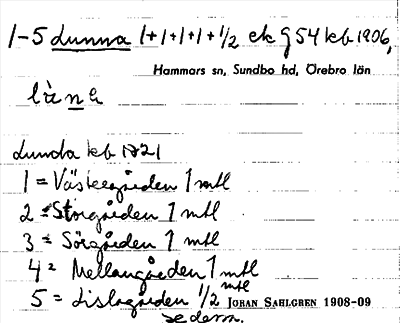 1-5 Lunna 1+1+1+1+1/2 ek g 54 kb 1906,
Hammars sn, Sundbo hd, Örebro län
Lunda kb 1721
1 = Västergården 1 mtl
2 = Storgården 1 mtl
3 = Sörgården 1 mtl
4 = Mellangården 1 mtl
5 = Lislagården 1/2 mtl
JOHAN SAHLGREN 1908-09